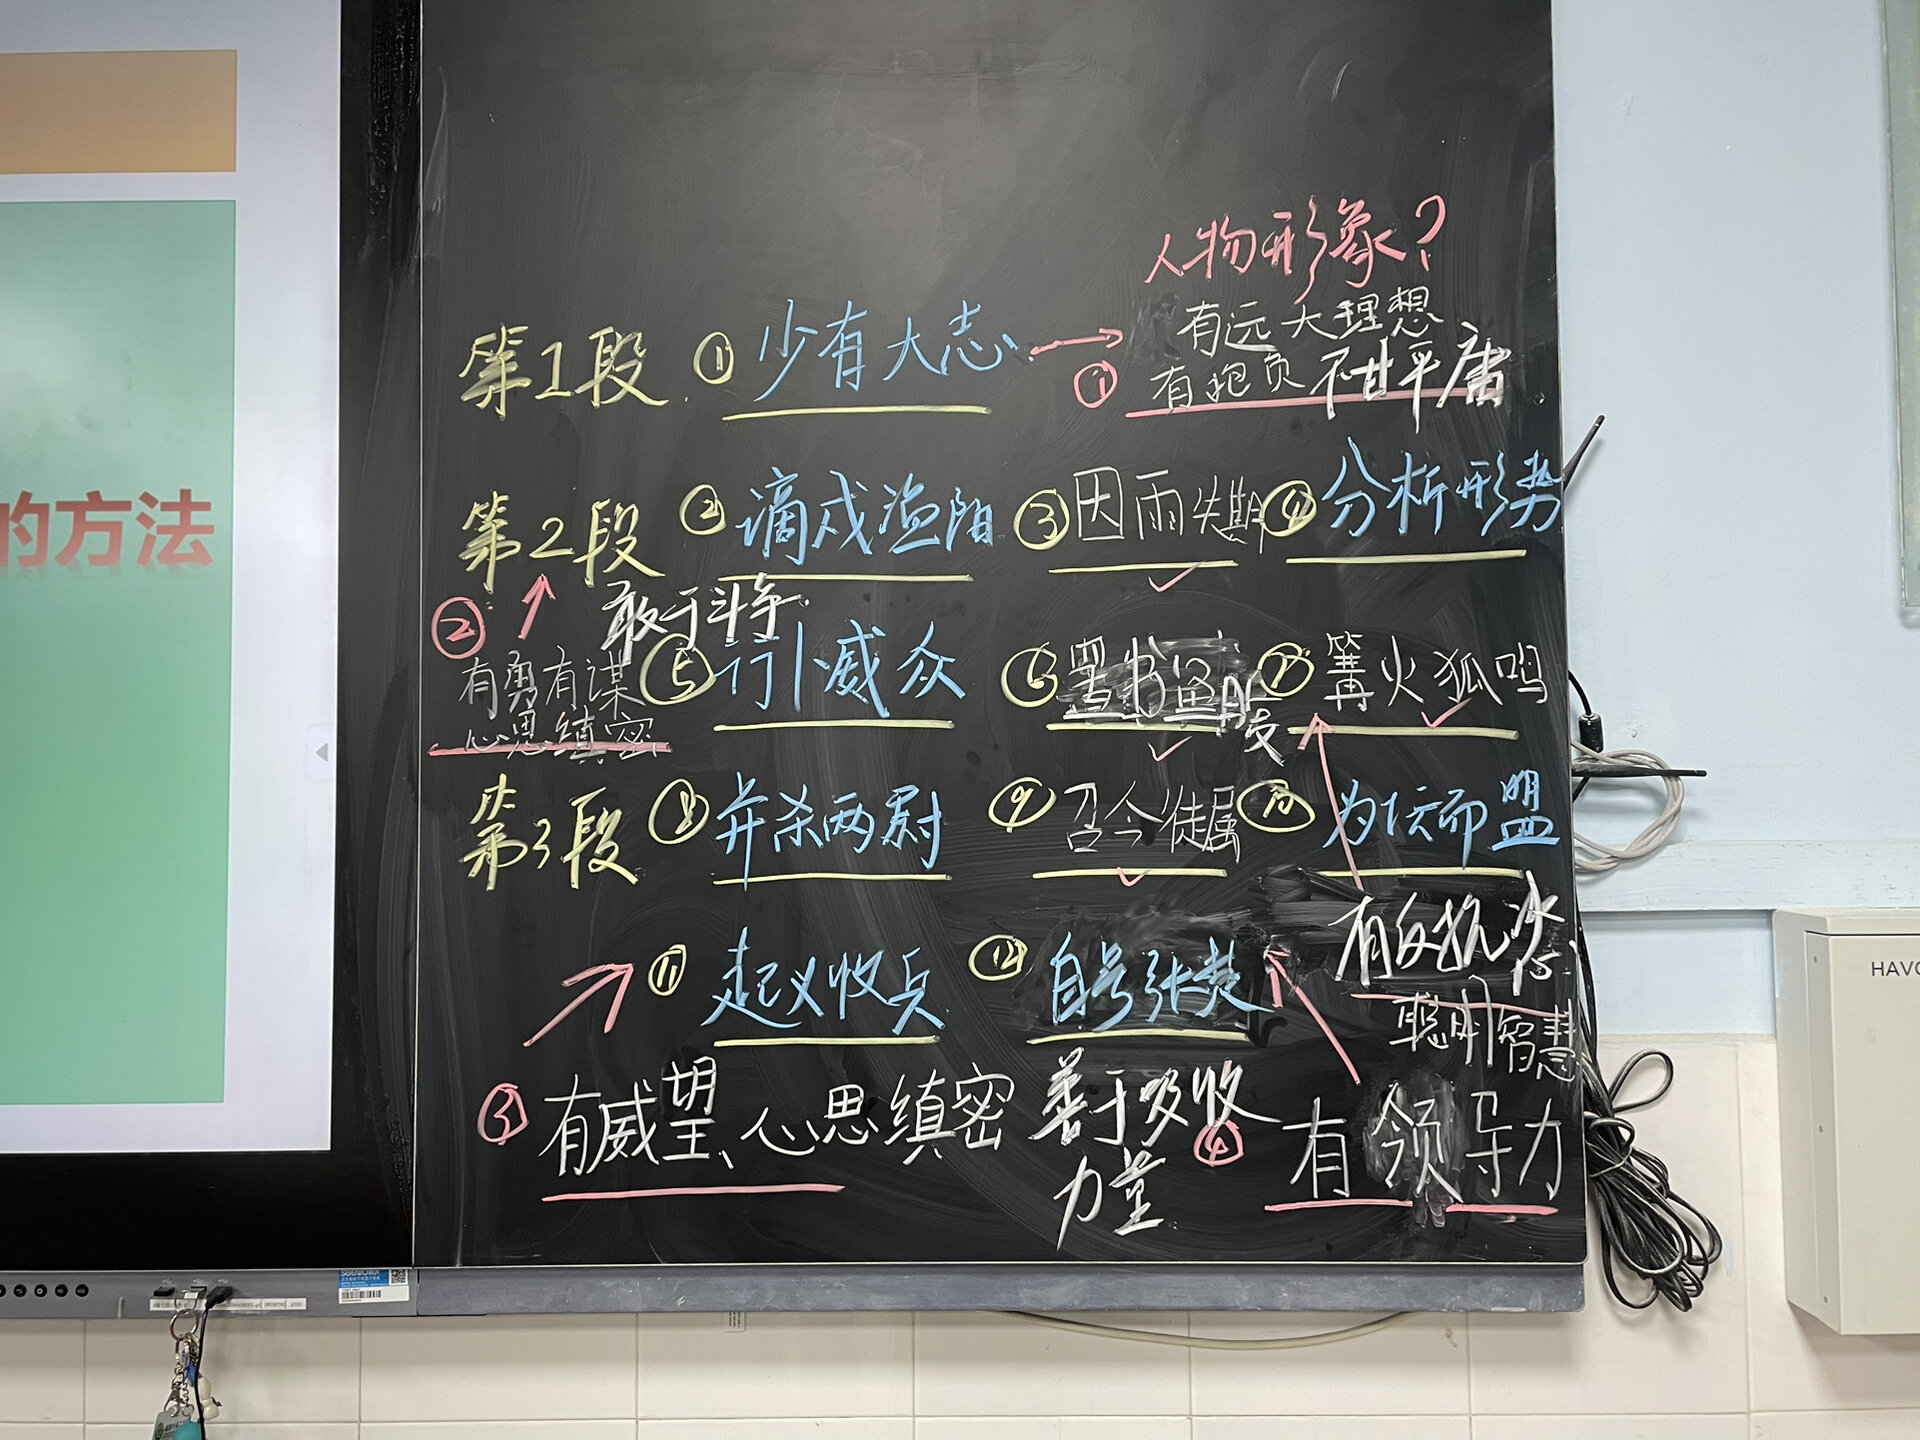 的方法
人物形象？
第1段 ① 少有大志 → 有远大理想
① 有抱负 不甘平庸
第2段 ② 谪戍渔阳 ③ 因雨失期 ④ 分析形势
② 敢于斗争
有勇有谋 ⑤ 行卜威众 ⑥ 置书鱼腹 ⑦ 篝火狐鸣
心思缜密
第3段 ⑧ 并杀两尉 ⑨ 召令徒属 ⑩ 为坛而盟
有反抗
⑪ 起义收兵 ⑫ 自号张楚
聪明智慧
③ 有威望、心思缜密 善于吸收
力量
④ 有领导力
seewo
HAVC